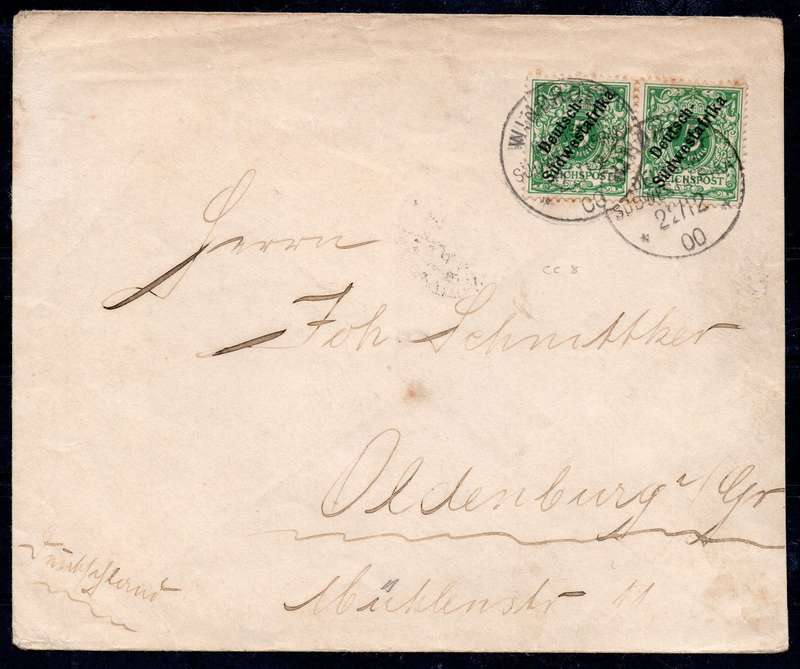 Deutsch-
Südwestafrika
REICHSPOST
Deutsch-
Südwestafrika
REICHSPOST
WINDHOEK
22/12
00
Herrn
Joh. Schnittker
CC 8
Oldenburg i/Gr
Deutschland
Mühlenstr 11